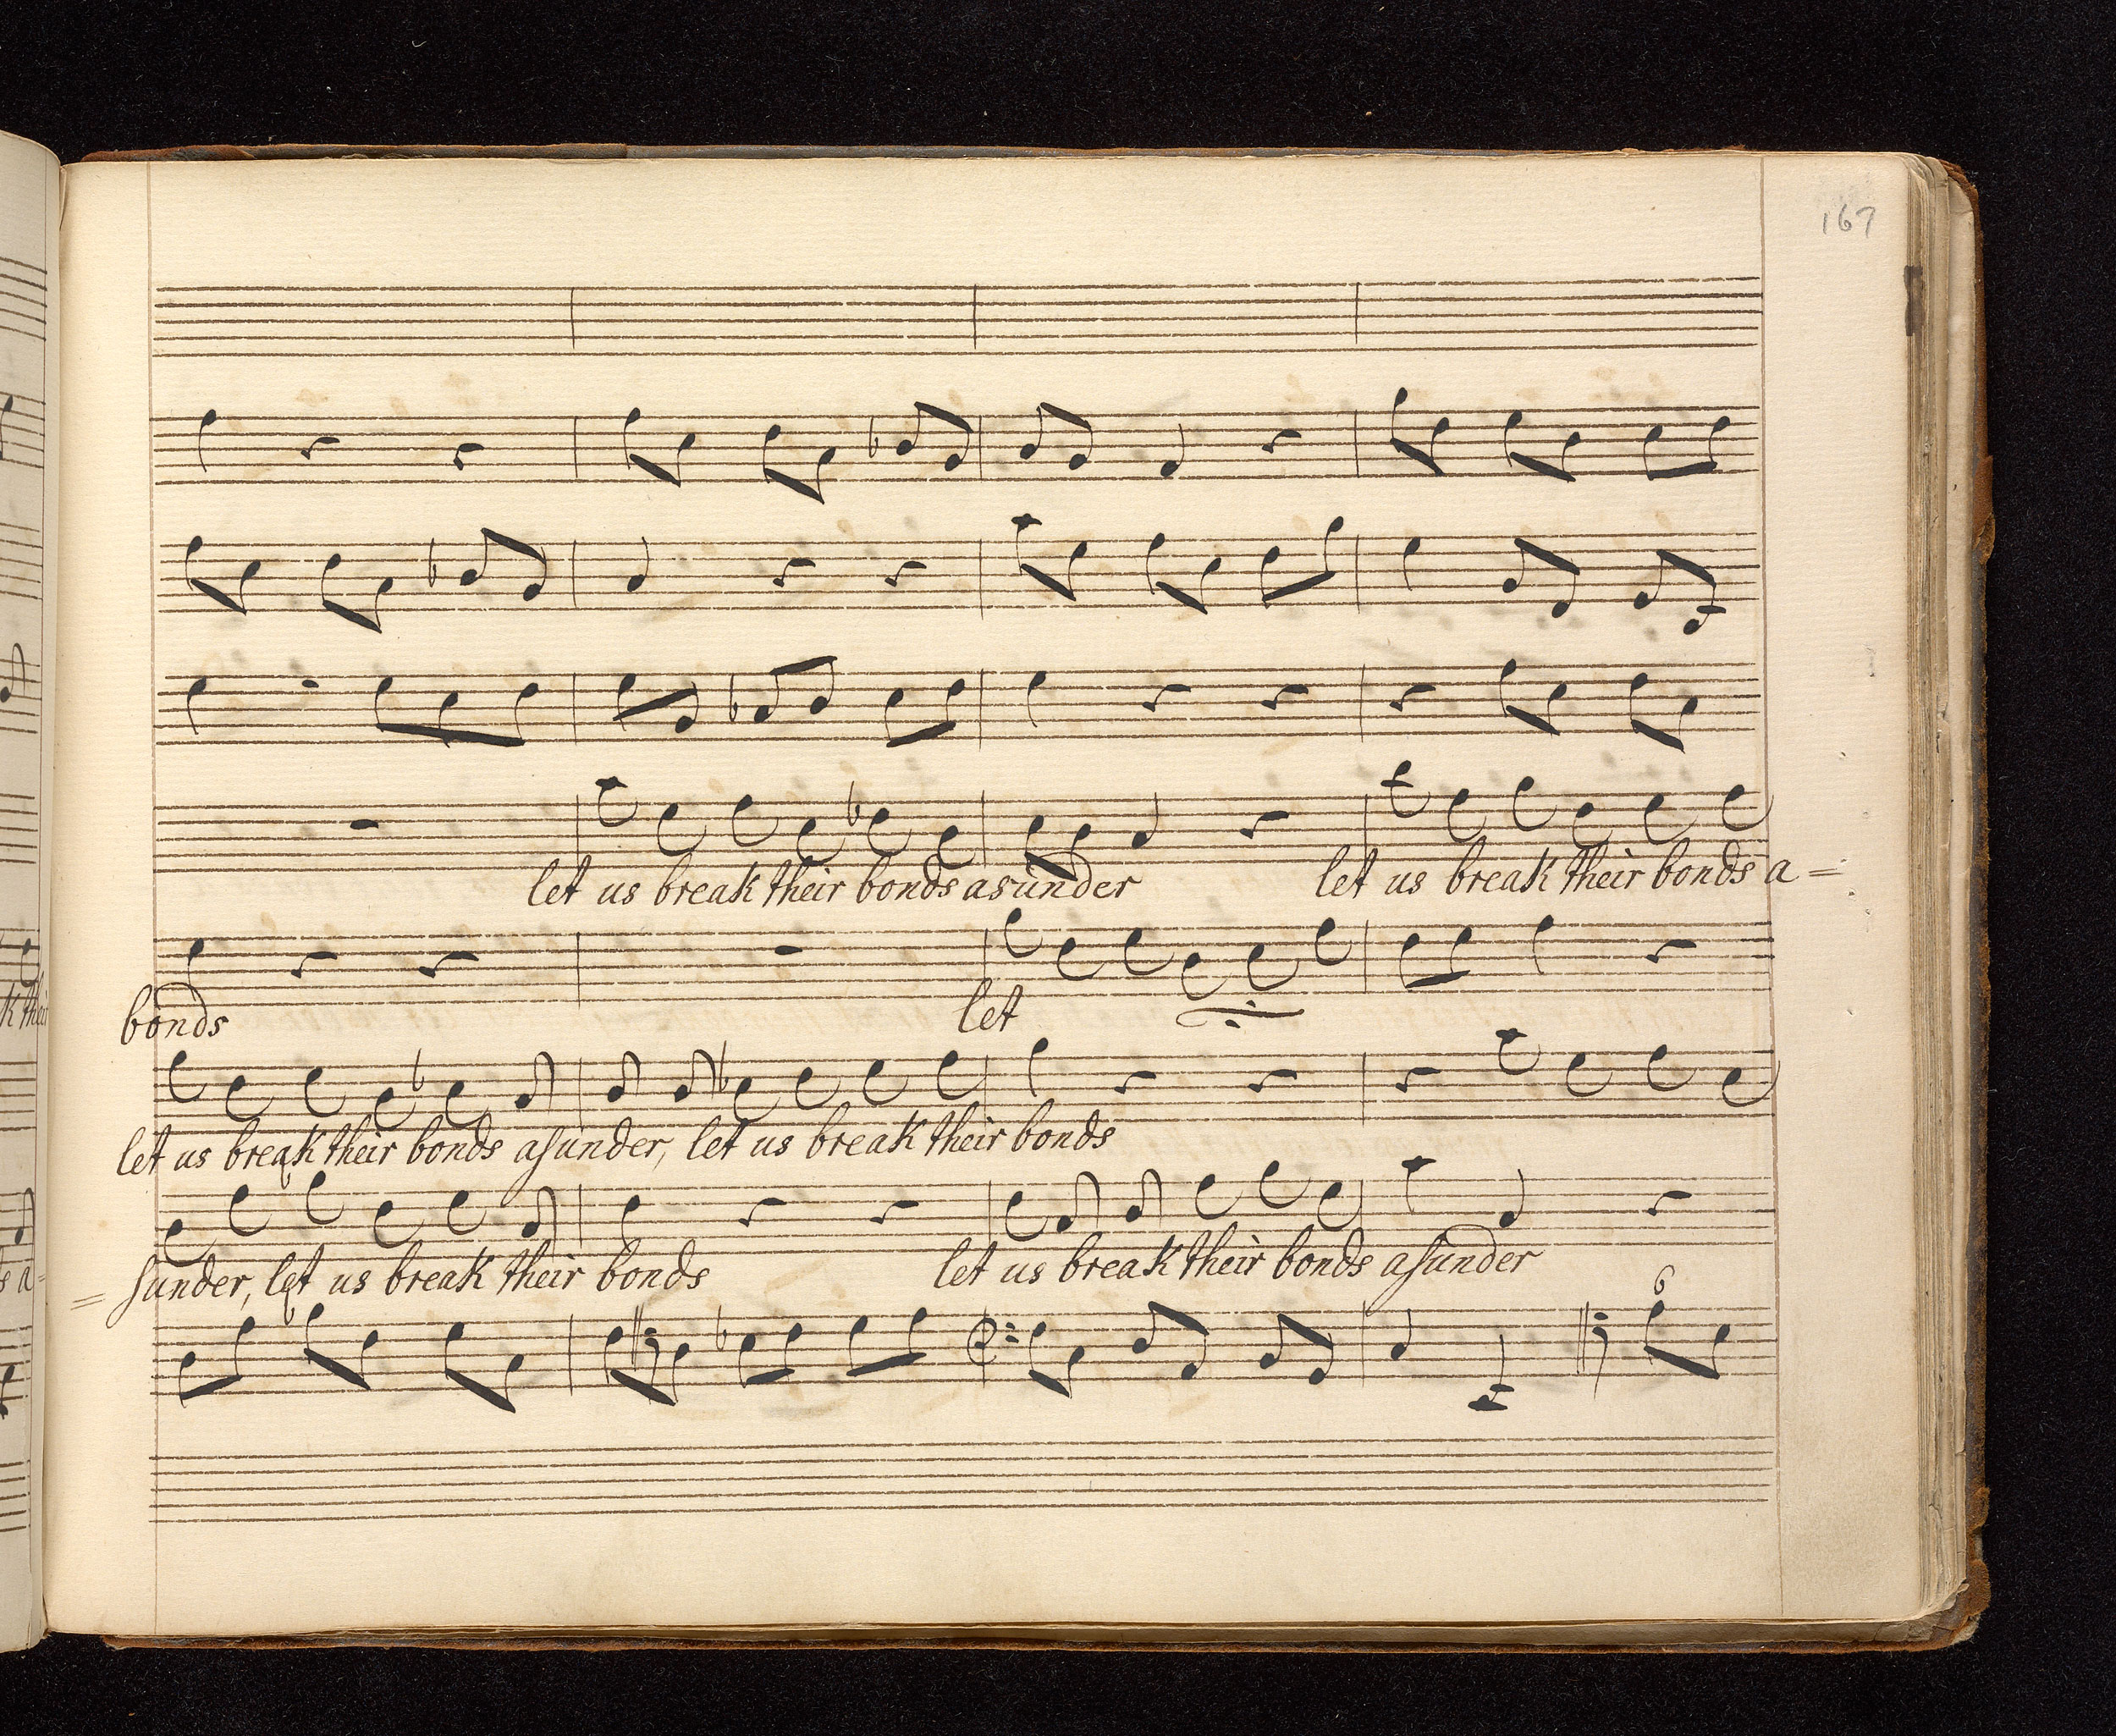 167
let us break their bonds asunder let us break their bonds a=
bonds let
let us break their bonds aſunder, let us break their bonds
=ſunder, let us break their bonds let us break their bonds aſunder
6